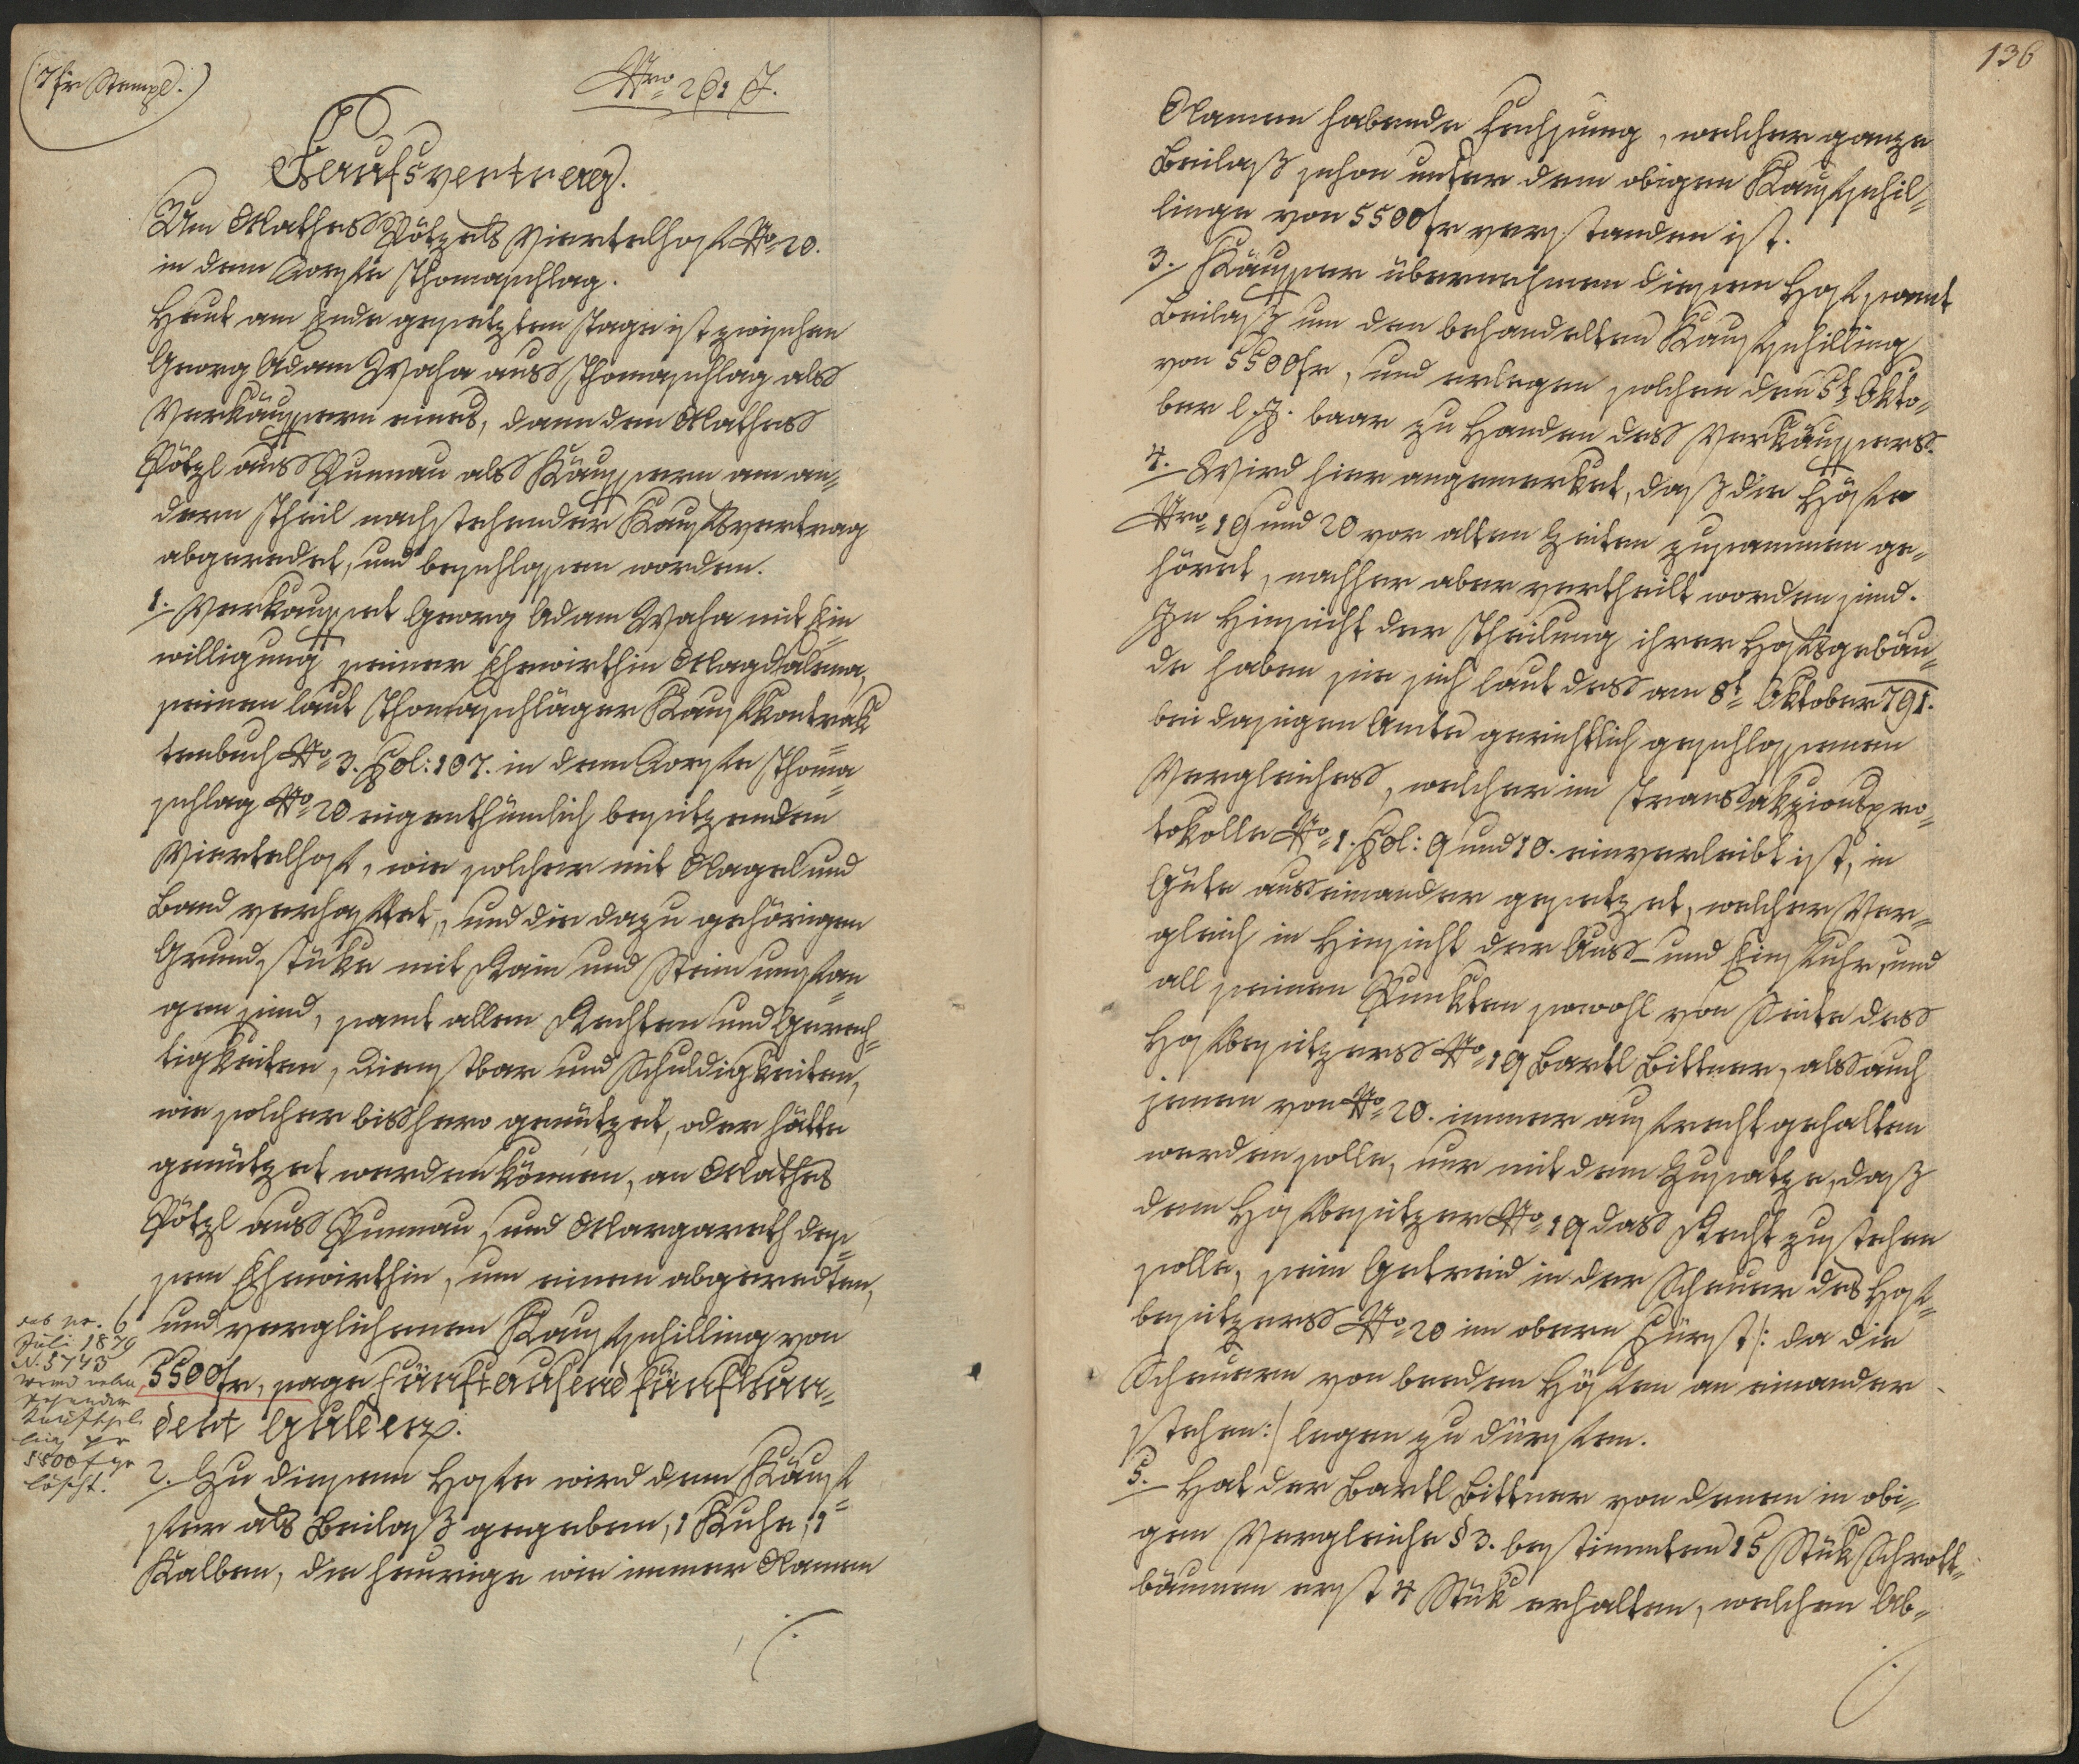 (7 fr Stempl.)
Nro 261 J.
Kaufsvertrag.
Um Mathes Pötzels Viertelhof No 20.
in dem Dorfe Thomaschlag.
Heut am Ende gesetzten Tage ist zwischen
Georg Adam Waha aus Thomaschlag als
Verkäuffern eines, dann dem Mathes
Pötzl aus Punnau als Käuffern am an-
dern Theil nachstehender Kaufsvertrag
abgeredet, und beschlossen worden.
1. Verkauffet Georg Adam Waha mit Ein
willigung seiner Ehewirthin Magdalena,
seinen laut Thomaschläger Kaufkontrak
tenbuch No 3. Fol: 107. in dem Dorfe Thoma
schlag No 20 eigenthümlich besitzenden
Viertelhof, wie solcher mit Nagel und
Band verhaftet, und die dazu gehörigen
Grundstüke mit Rain und Stein umfan
gen sind, samt allen Rechten und Gerech
tigkeiten, Dienstbar und Schuldigkeiten,
wie solcher bishero genützet, oder hätte
genützet werden können, an Mathes
Pötzl aus Punnau, und Margareth des-
sen Ehewirthin, um einen abgeredten,
und verglichenen Kaufschilling von
5500 fr, sage Fünftausend fünfhun-
dert Gulden.
2. Zu diesem Hofe wird dem Käuf
fer als Beilaß gegeben, 1 Kuhe, 1
Kalben, die heurige wie immer Namen
pr. 6
Juli 1879
N. 5743
wird neben
stehender
Kaufschil
ling pr
5500 f ge
löscht.
136
Namen habende Fechsung, welcher ganze
Beilaß schon unter dem obigen Kaufschil-
linge von 5500 fr verstanden ist.
3. Käuffer übernehmen diesen Hof samt
Beilaß um den behandelten Kaufschilling
von 5500 fr, und erlegen solchen den 5t Okto-
ber l. J. baar zu Handen des Verkäuffers.
4. Wird hier angemerket, daß die Höfe
Nro 19 und 20 vor alten Zeiten zusammen ge-
höret, nachher aber vertheilt worden sind.
In Hinsicht der Theilung ihrer Hofsgebäu-
de haben sie sich laut des am 8t Oktober 791.
bei dasigen Amte gerichtlich geschlossenen
Vergleiches, welcher im Transakzionspro-
tokolle No 1. Fol: 9 und 10. einverleibt ist, in
Güte auseinander gesetzet, welcher Ver-
gleich in Hinsicht der Aus- und Einfuhr, und
all seinen Punkten sowohl von Seite des
Hofbesitzers No 19 Bartl Bittner, als auch
jenen von No 20. immer aufrecht gehalten
werden solle, nur mit dem Zusatze, daß
dem Hofbesitzer No 19 das Recht zustehen
solle, sein Getreid in der Scheuer des Hof-
besitzers No 20 im obern Fürst /: da die
Scheuern von beeden Höfen an einander
stehen:/ legen zu dürfen.
5. Hat der Bartl Bittner von denen in obi-
gen Vergleiche § 3. bestimmten 15 Stük Schrott-
bäumen erst 4 Stük erhalten, welchen Ab-